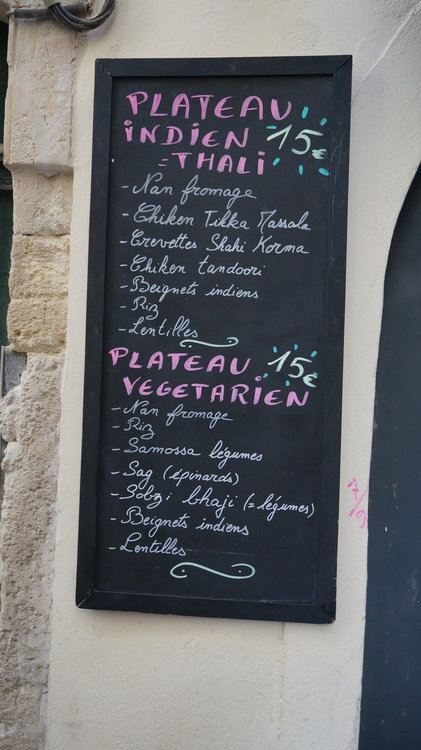 PLATEAU
INDIEN 15€
= THALI
- Nan fromage
- Chiken Tikka Massala
- Crevettes Shahi Korma
- Chiken tandoori
- Beignets indiens
- Riz
- Lentilles
PLATEAU 15€
VEGETARIEN
- Nan fromage
- Riz
- Samossa légumes
- Sag (épinards)
- Sobzi bhaji (= légumes)
- Beignets indiens
- Lentilles